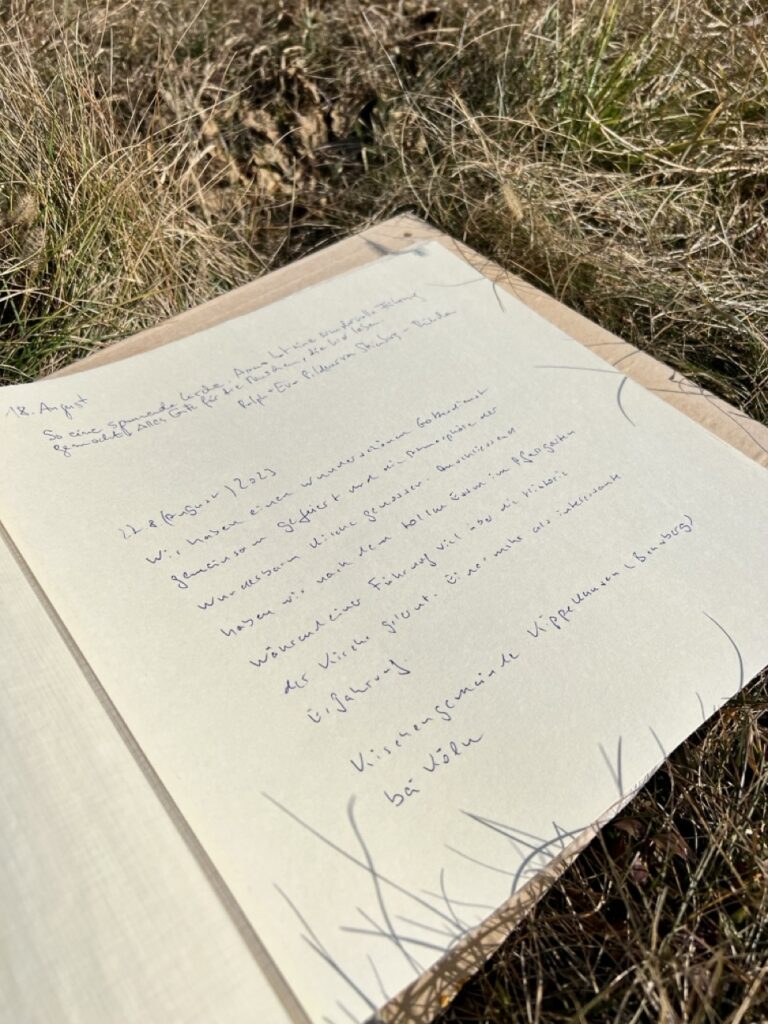 18. August
So eine spannende Kirche. Anne hat eine wundervolle Führung
gemacht! Alles Gute für die Menschen, die hier leben
Ralph + Eva
27.8 (August) 2023
Wir haben einen wunderschönen Gottesdienst
gemeinsam gefeiert und die Atmosphäre der
wunderbaren Kirche genossen. Anschliessend
haben wir nach dem tollen Essen im Pfarrgarten
während einer Führung viel über die Historie
der Kirche gelernt. Eine mehr als interessante
Erfahrung
Kirchengemeinde Kippekausen (Bensberg)
bei Köln